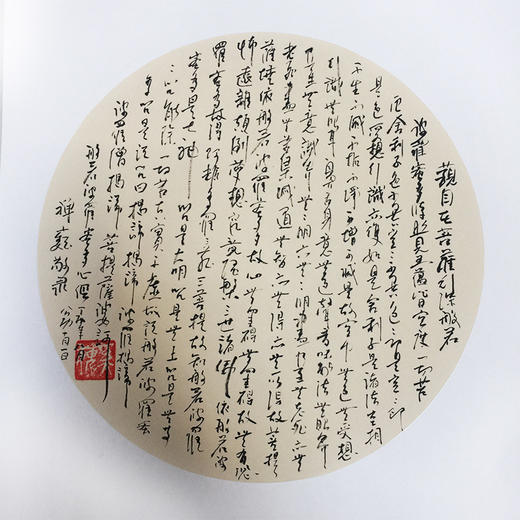 觀自在菩薩行深般若
波羅蜜多時照見五蘊皆空度一切苦
厄舍利子色不異空空不異色色即是空空即
是色受想行識亦復如是舍利子是諸法空相
不生不滅不垢不淨不增不減是故空中無色無受想
行識無眼耳鼻舌身意無色聲香味觸法無眼界
乃至無意識界無無明亦無無明盡乃至無老死亦無
老死盡無苦集滅道無智亦無得以無所得故菩提
薩埵依般若波羅蜜多故心無罣礙無罣礙故無有恐
怖遠離顛倒夢想究竟涅槃三世諸佛依般若波
羅蜜多故得阿耨多羅三藐三菩提故知般若波羅
蜜多是大神咒是大明咒是無上咒是無等
等咒能除一切苦真實不虛故說般若波羅蜜
多咒即說咒曰揭諦揭諦波羅揭諦
波羅僧揭諦菩提薩婆訶
般若波羅蜜多心經
禪 敬錄